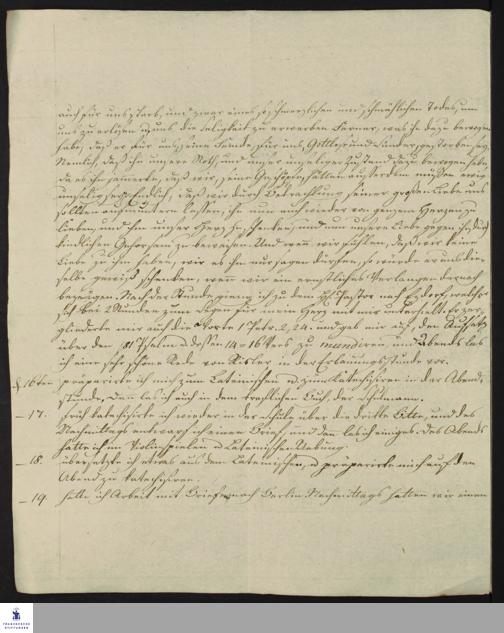 auch für uns starb, und zwar eines so schmerzlichen und schmählichen Todes, um
uns zu erlösen u uns die Seligkeit zu erwerben. Ferner, was ihn dazu bewogen
habe, daß er für uns, seine Feinde, für uns, Gottlose und Sünder, gestorben sey.
Nemlich, daß ihn unsere Noth und unser unseliger Zustand dazu bewogen habe,
da es ihn jammerte, daß wir, seine Geschöpfe, hätten müßen ewig
unselig seyn. Endlich, daß wir durch Betrachtung seiner großen Liebe uns
sollten aufmuntern lassen, ihn nun auch wieder von ganzem Herzen zu
lieben, und ihm unser Herz zu schenken, und nun unsere Liebe gegen ihn durch
kindlichen Gehorsam zu beweisen. Und wenn wir fühlten, daß wir keine
Liebe zu ihm haben, wir es ihm nur sagen dürften, so würde er uns die-
selbe gewiß schenken, wenn wir ein ernstliches Verlangen darnach
bezeigen. Nach der Stunde gieng ich zu dem Pastor nach dorf, welcher
sich bei 2 Stunden zum Segen für mein Herz mit mir unterhielt. Er zer-
gliederte mir auch die Worte 1 Petr. 2, 24. und gab mir auf, den Aufsatz
über den Psalm u dessen 14-16 Vers zu mundiren, und Abends las
ich eine sehr schöne Rede von in der Erbauungsstunde vor.
d. 16ten präparirte ich mich zum Lateinischen u zum Katechisiren in der Abend-
stunde. Dann las ich auch in dem trefflichen Buch, der Schulmann.
— 17. früh katechisirte ich wieder in der Schule über die dritte Bitte, und des
Nachmittags entwarf ich einen Brief und dann las ich einiges. Des Abends
hatte ich im Violinspielen u Lateinischen Uebung.
— 18. übersetzte ich etwas aus dem Lateinischen, u präparirte mich auf den
Abend zu katechisiren.
— 19. hatte ich Arbeit mit Briefen nach Berlin. Nachmittags hatten wir einen
FRANCKESCHE
STIFTUNGEN